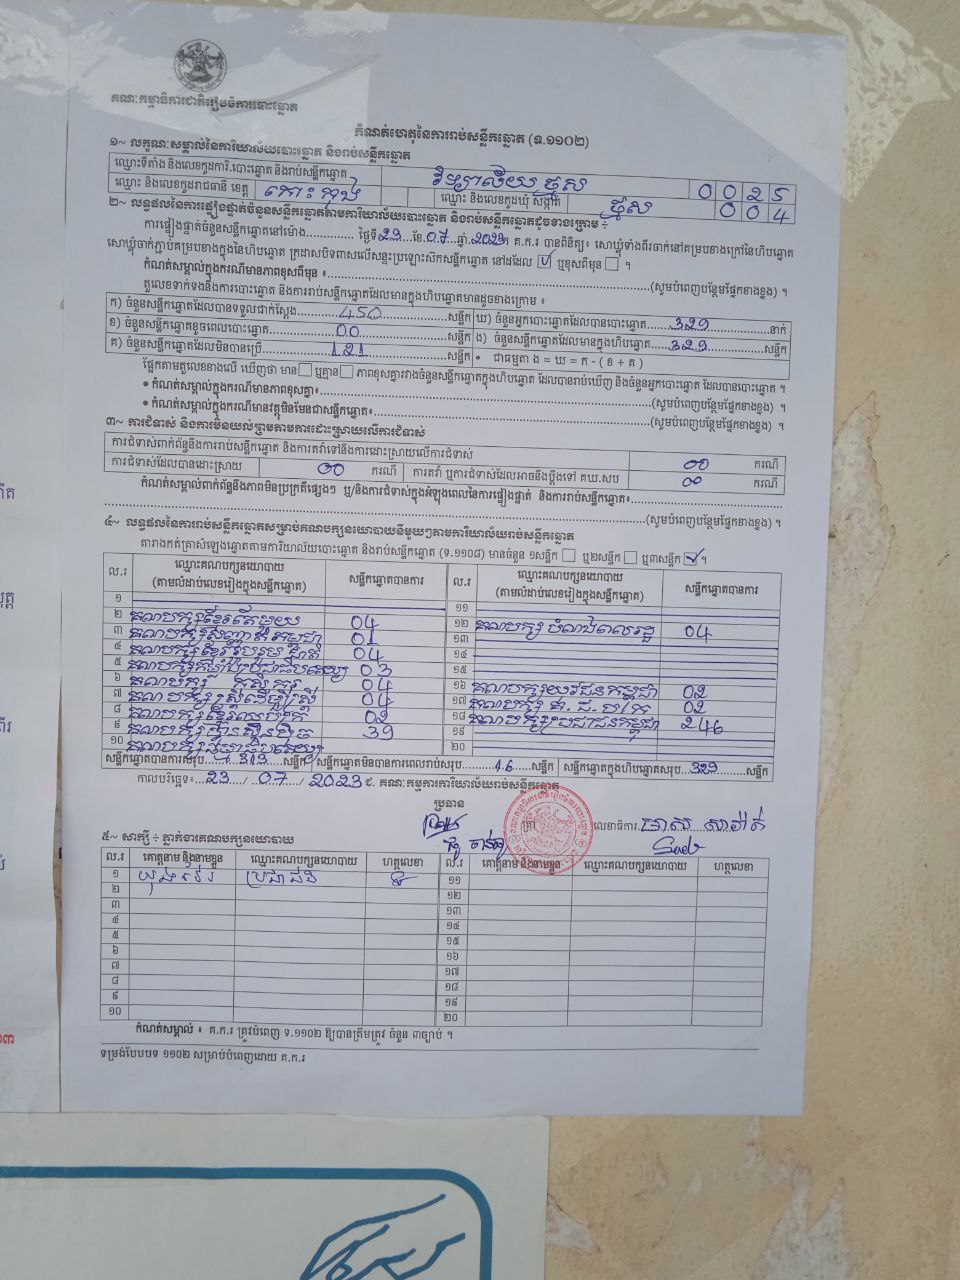 គណៈកម្មាធិការជាតិរៀបចំការបោះឆ្នោត
កំណត់ហេតុនៃការរាប់សន្លឹកឆ្នោត (ទ.១១០២)
១~ លក្ខណៈសម្គាល់នៃការិយាល័យបោះឆ្នោត និងរាប់សន្លឹកឆ្នោត
ឈ្មោះទីតាំង និងលេខកូដការិ.បោះឆ្នោត និងរាប់សន្លឹកឆ្នោត វិទ្យាល័យ ថ្មស 0 0 2 5
ឈ្មោះ និងលេខកូដរាជធានី ខេត្ត កោះកុង ឈ្មោះ និងលេខកូដឃុំ សង្កាត់ ថ្មស 0 0 4
២~ លទ្ធផលនៃការផ្ទៀងផ្ទាត់ចំនួនសន្លឹកឆ្នោតតាមការិយាល័យបោះឆ្នោត និងរាប់សន្លឹកឆ្នោតដូចខាងក្រោម ÷
ការផ្ទៀងផ្ទាត់ចំនួនសន្លឹកឆ្នោតនៅម៉ោង............. ថ្ងៃទី23 ខែ07 ឆ្នាំ2023 គ.ក.រ បានពិនិត្យ៖ សោឃ្លុំទាំងពីរចាក់នៅគម្របខាងក្រៅនៃហិបឆ្នោត
សោឃ្លុំចាក់ភ្ជាប់គម្របខាងក្នុងនៃហិបឆ្នោត ក្រដាសបិទពាសលើសន្ទះប្រឡោះស៊កសន្លឹកឆ្នោត នៅដដែល ឬខុសពីមុន ។
កំណត់សម្គាល់ក្នុងករណីមានភាពខុសពីមុន ៖...............(សូមបំពេញបន្ថែមផ្នែកខាងខ្នង) ។
តួលេខទាក់ទងនឹងការបោះឆ្នោត និងការរាប់សន្លឹកឆ្នោតដែលមានក្នុងហិបឆ្នោតមានដូចខាងក្រោម ៖
ក) ចំនួនសន្លឹកឆ្នោតដែលបានទទួលជាក់ស្តែង 450 សន្លឹក ឃ) ចំនួនអ្នកបោះឆ្នោតដែលបានបោះឆ្នោត 329 នាក់
ខ) ចំនួនសន្លឹកឆ្នោតខូចពេលបោះឆ្នោត 00 សន្លឹក ង) ចំនួនសន្លឹកឆ្នោតមានក្នុងហិបឆ្នោត 329 សន្លឹក
គ) ចំនួនសន្លឹកឆ្នោតដែលមិនបានប្រើ 121 សន្លឹក • ជាធម្មតា ង = ឃ = ក - ( ខ + គ )
ផ្អែកតាមតួលេខខាងលើ ឃើញថា មាន ឬគ្មាន ភាពខុសគ្នារវាងចំនួនសន្លឹកឆ្នោតក្នុងហិបឆ្នោត ដែលបានរាប់ឃើញ និងចំនួនអ្នកបោះឆ្នោត ដែលបានបោះឆ្នោត ។
• កំណត់សម្គាល់ក្នុងករណីមានភាពខុសគ្នា៖...............(សូមបំពេញបន្ថែមផ្នែកខាងខ្នង) ។
• កំណត់សម្គាល់ក្នុងករណីមានវត្ថុមិនមែនជាសន្លឹកឆ្នោត៖...............(សូមបំពេញបន្ថែមផ្នែកខាងខ្នង) ។
៣~ ការជំទាស់ និងការមិនយល់ព្រមតាមការដោះស្រាយលើការជំទាស់
ការជំទាស់ពាក់ព័ន្ធនឹងការរាប់សន្លឹកឆ្នោត និងការតវ៉ាទៅនឹងការដោះស្រាយលើការជំទាស់ 00 ករណី
ការជំទាស់ដែលបានដោះស្រាយ 00 ករណី ការតវ៉ា ឬការជំទាស់ដែលអាចនឹងប្តឹងទៅ គឃ.សប 00 ករណី
កំណត់សម្គាល់ពាក់ព័ន្ធនឹងភាពមិនប្រក្រតីផ្សេងៗ ឬ/និងការជំទាស់ក្នុងអំឡុងពេលនៃការផ្ទៀងផ្ទាត់ និងការរាប់សន្លឹកឆ្នោត៖...............
(សូមបំពេញបន្ថែមផ្នែកខាងខ្នង) ។
៤~ លទ្ធផលនៃការរាប់សន្លឹកឆ្នោតសម្រាប់គណបក្សនយោបាយនីមួយៗតាមការិយាល័យរាប់សន្លឹកឆ្នោត
តារាងកត់ត្រាសំឡេងឆ្នោតតាមការិយាល័យបោះឆ្នោត និងរាប់សន្លឹកឆ្នោត (ទ.១១០៨) មានចំនួន ១សន្លឹក ឬ២សន្លឹក ឬ៣សន្លឹក ។
ល.រ ឈ្មោះគណបក្សនយោបាយ (តាមលំដាប់លេខរៀងក្នុងសន្លឹកឆ្នោត) សន្លឹកឆ្នោតបានការ ល.រ ឈ្មោះគណបក្សនយោបាយ (តាមលំដាប់លេខរៀងក្នុងសន្លឹកឆ្នោត) សន្លឹកឆ្នោតបានការ
១ ១១
២ គណបក្សខ្មែរតែមួយ 04 ១២ គណបក្ស បំណងពលរដ្ឋ 04
៣ គណបក្សសញ្ជាតិកម្ពុជា 01 ១៣
៤ គណបក្សខ្មែររួបរួមជាតិ 04 ១៤
៥ គណបក្សកម្លាំងប្រជាធិបតេយ្យ 03 ១៥
៦ គណបក្ស កសិករ 04 ១៦ គណបក្សយុវជនកម្ពុជា 02
៧ គណបក្សស្ត្រីដើម្បីស្ត្រី 04 ១៧ គណបក្ស 02
៨ 02 ១៨ គណបក្សប្រជាជនកម្ពុជា 246
៩ គណបក្សហ៊្វុនស៊ិនប៉ិច 39 ១៩
១០ គណបក្ស ២០
សន្លឹកឆ្នោតបានការសរុប 313 សន្លឹក សន្លឹកឆ្នោតមិនបានការពេលរាប់សរុប 16 សន្លឹក សន្លឹកឆ្នោតក្នុងហិបឆ្នោតសរុប 329 សន្លឹក
កាលបរិច្ឆេទ៖ 23 / 07 / 2023 ជ. គណៈកម្មការការិយាល័យរាប់សន្លឹកឆ្នោត
ប្រធាន
លេខាធិការ
៥~ សាក្សី ÷ ភ្នាក់ងារគណបក្សនយោបាយ
ល.រ គោត្តនាម និងនាមខ្លួន ឈ្មោះគណបក្សនយោបាយ ហត្ថលេខា ល.រ គោត្តនាម និងនាមខ្លួន ឈ្មោះគណបក្សនយោបាយ ហត្ថលេខា
១ ប្រជាជន ១១
២ ១២
៣ ១៣
៤ ១៤
៥ ១៥
៦ ១៦
៧ ១៧
៨ ១៨
៩ ១៩
១០ ២០
កំណត់សម្គាល់ ៖ គ.ក.រ ត្រូវបំពេញ ទ.១១០២ ឱ្យបានត្រឹមត្រូវ ចំនួន ៣ច្បាប់ ។
ទម្រង់បែបបទ ១១០២ សម្រាប់បំពេញដោយ គ.ក.រ